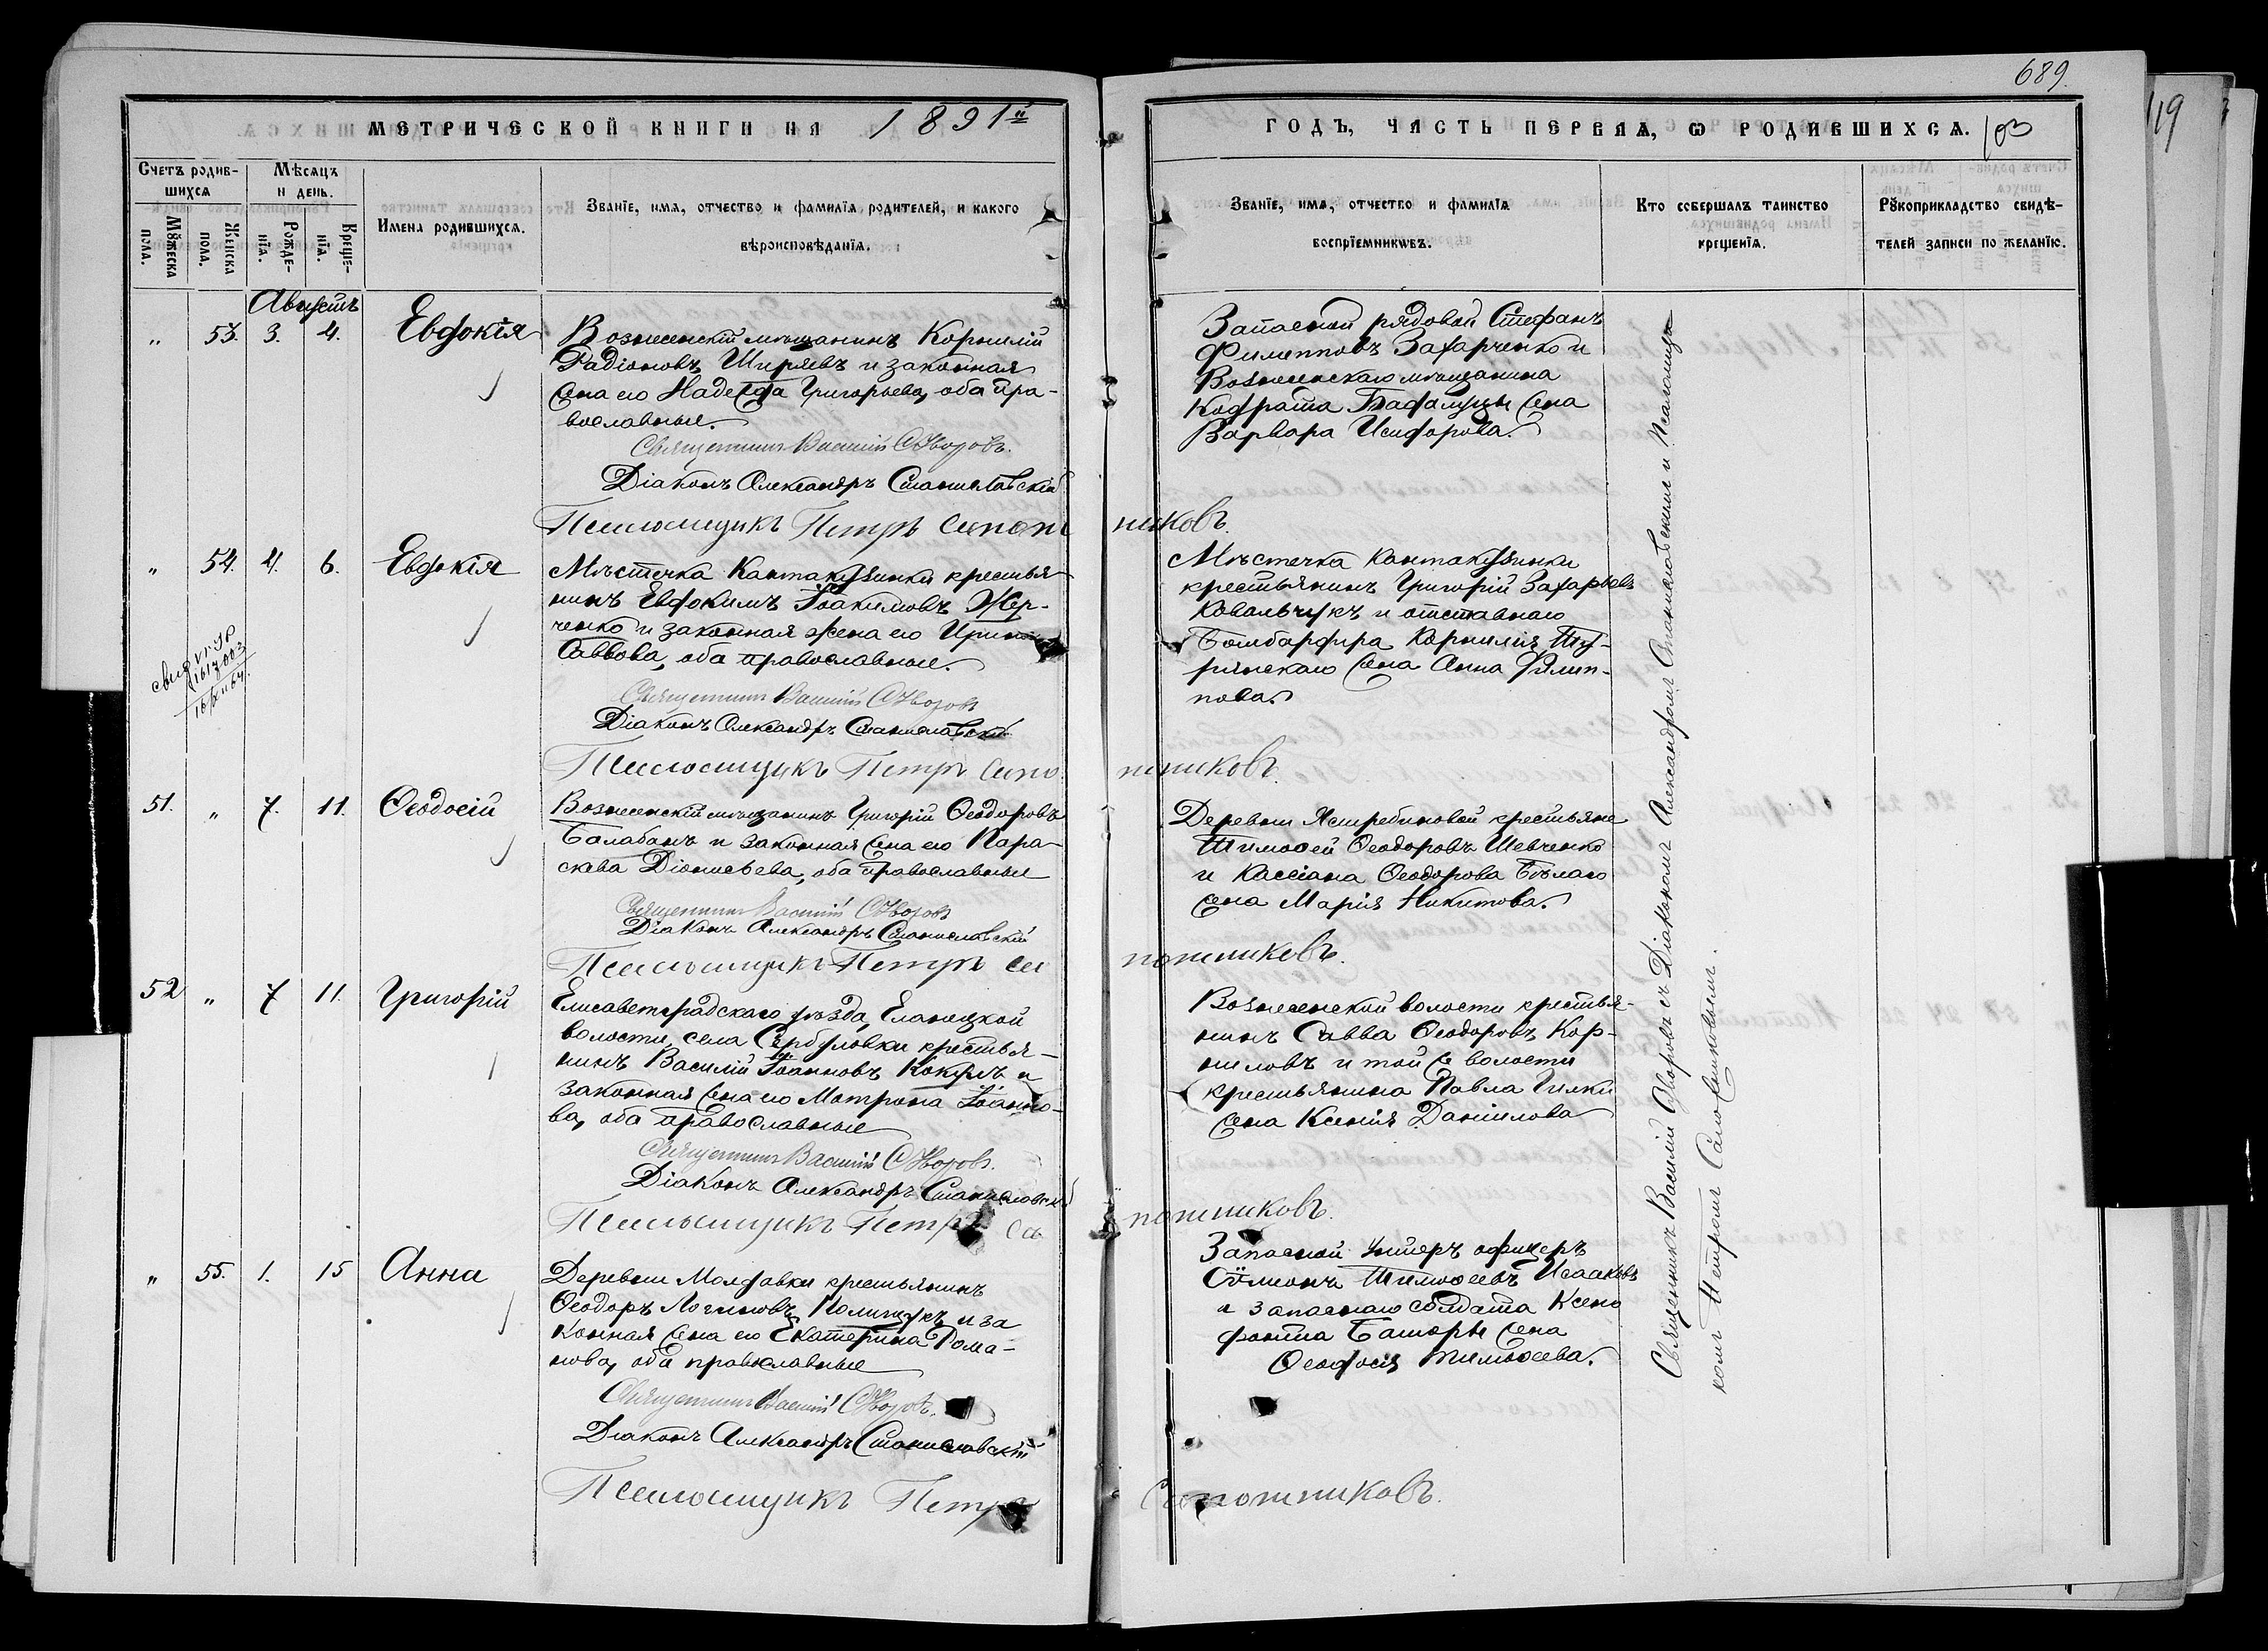 689.
МЕТРИЧЕСКОЙ КНИГИ НА 1891й
ГОДЪ, ЧАСТЬ ПЕРВАЯ, Ѡ РОДИВШИХСѦ. 103
119
Счетъ родив-
шихсѧ
Мѣсѧцъ
и день.
Мꙋжеска
пола.
Женска
пола.
Рожде-
нїѧ.
Креще-
нїѧ.
Имена родившихсѧ.
Званїе, имѧ, отчество и фамилїѧ родителей, и какого
вѣроисповѣданїѧ.
Званїе, имѧ, отчество и фамилїѧ
воспрїемникѡвъ.
Кто совершалъ таинство
крещенїѧ.
Рꙋкоприкладство свидѣ-
телей записи по желанїю.
Августъ
" 53. 3. 4. Евдокія
Вознесенскій мѣщанинъ Корнилій
Радіоновъ Ширяевъ и законная
жена его Надежда Григорьева, оба пра-
вославные.
Священникъ Василій
Діаконъ Александръ Станиславскій
Псаломщикъ Петръ Сапожниковъ.
Запасной рядовой Стефанъ
Филипповъ Захарченко и
Вознесенскаго мѣщанина
Кодрата жена
Варвара Исидорова.
" 54. 4. 6. Евдокія
Мѣстечка Кантакузинки крестья-
нинъ Евдокимъ Іоакимовъ Жер-
ченко и законная жена его Ирина
Саввова, оба православные.
Священникъ Василій
Діаконъ Александръ Станиславскій
Псаломщикъ Петръ Сапожниковъ.
Мѣстечка Кантакузинки
крестьянинъ Григорій Захарьевъ
Ковальчукъ и отставнаго
Бомбардира Корнилія
жена Анна Филип-
пова.
51. " 7. 11. Ѳеодосій
Вознесенскій мѣщанинъ Григорій Ѳеодоровъ
Балабанъ и законная жена его Пара-
скева Діонисьева, оба православные
Священникъ Василій
Діаконъ Александръ Станиславскій
Псаломщикъ Петръ Сапожниковъ.
Деревни Ястребиновой крестьяне
Тимоѳей Ѳеодоровъ Шевченко
и Кассіана Ѳеодорова Бѣлаго
жена Марія Никитова.
52 " 7 11. Григорій
Елисаветградскаго уѣзда, Еланецкой
волости, села Сербуловки крестья-
нинъ Василій Іоанновъ Кокулъ и
законная жена его Матрона Іоанно-
ва, оба православные
Священникъ Василій
Діаконъ Александръ Станиславскій
Псаломщикъ Петръ Сапожниковъ.
Вознесенской волости крестья-
нинъ Савва Ѳеодоровъ Кор-
ниловъ и той же волости
крестьянина Павла Гилки
жена Ксенія Даніилова
" 55. 1. 15 Анна
Деревни Молдавки крестьянинъ
Ѳеодоръ Логиновъ Полищукъ и за
конная жена его Екатерина Рома-
нова, оба православные
Священникъ Василій
Діаконъ Александръ Станиславскій
Псаломщикъ Петръ Сапожниковъ.
Запасной Унтеръ офицеръ
Сѵмеонъ Тимоѳеевъ Исааковъ
и запаснаго солдата Ксено
фонта жена
Ѳеодосія Тимоѳеева.
Священникъ Василій съ Діакономъ Александромъ Станиславскимъ и Псаломщи-
комъ Петромъ Сапожниковымъ.